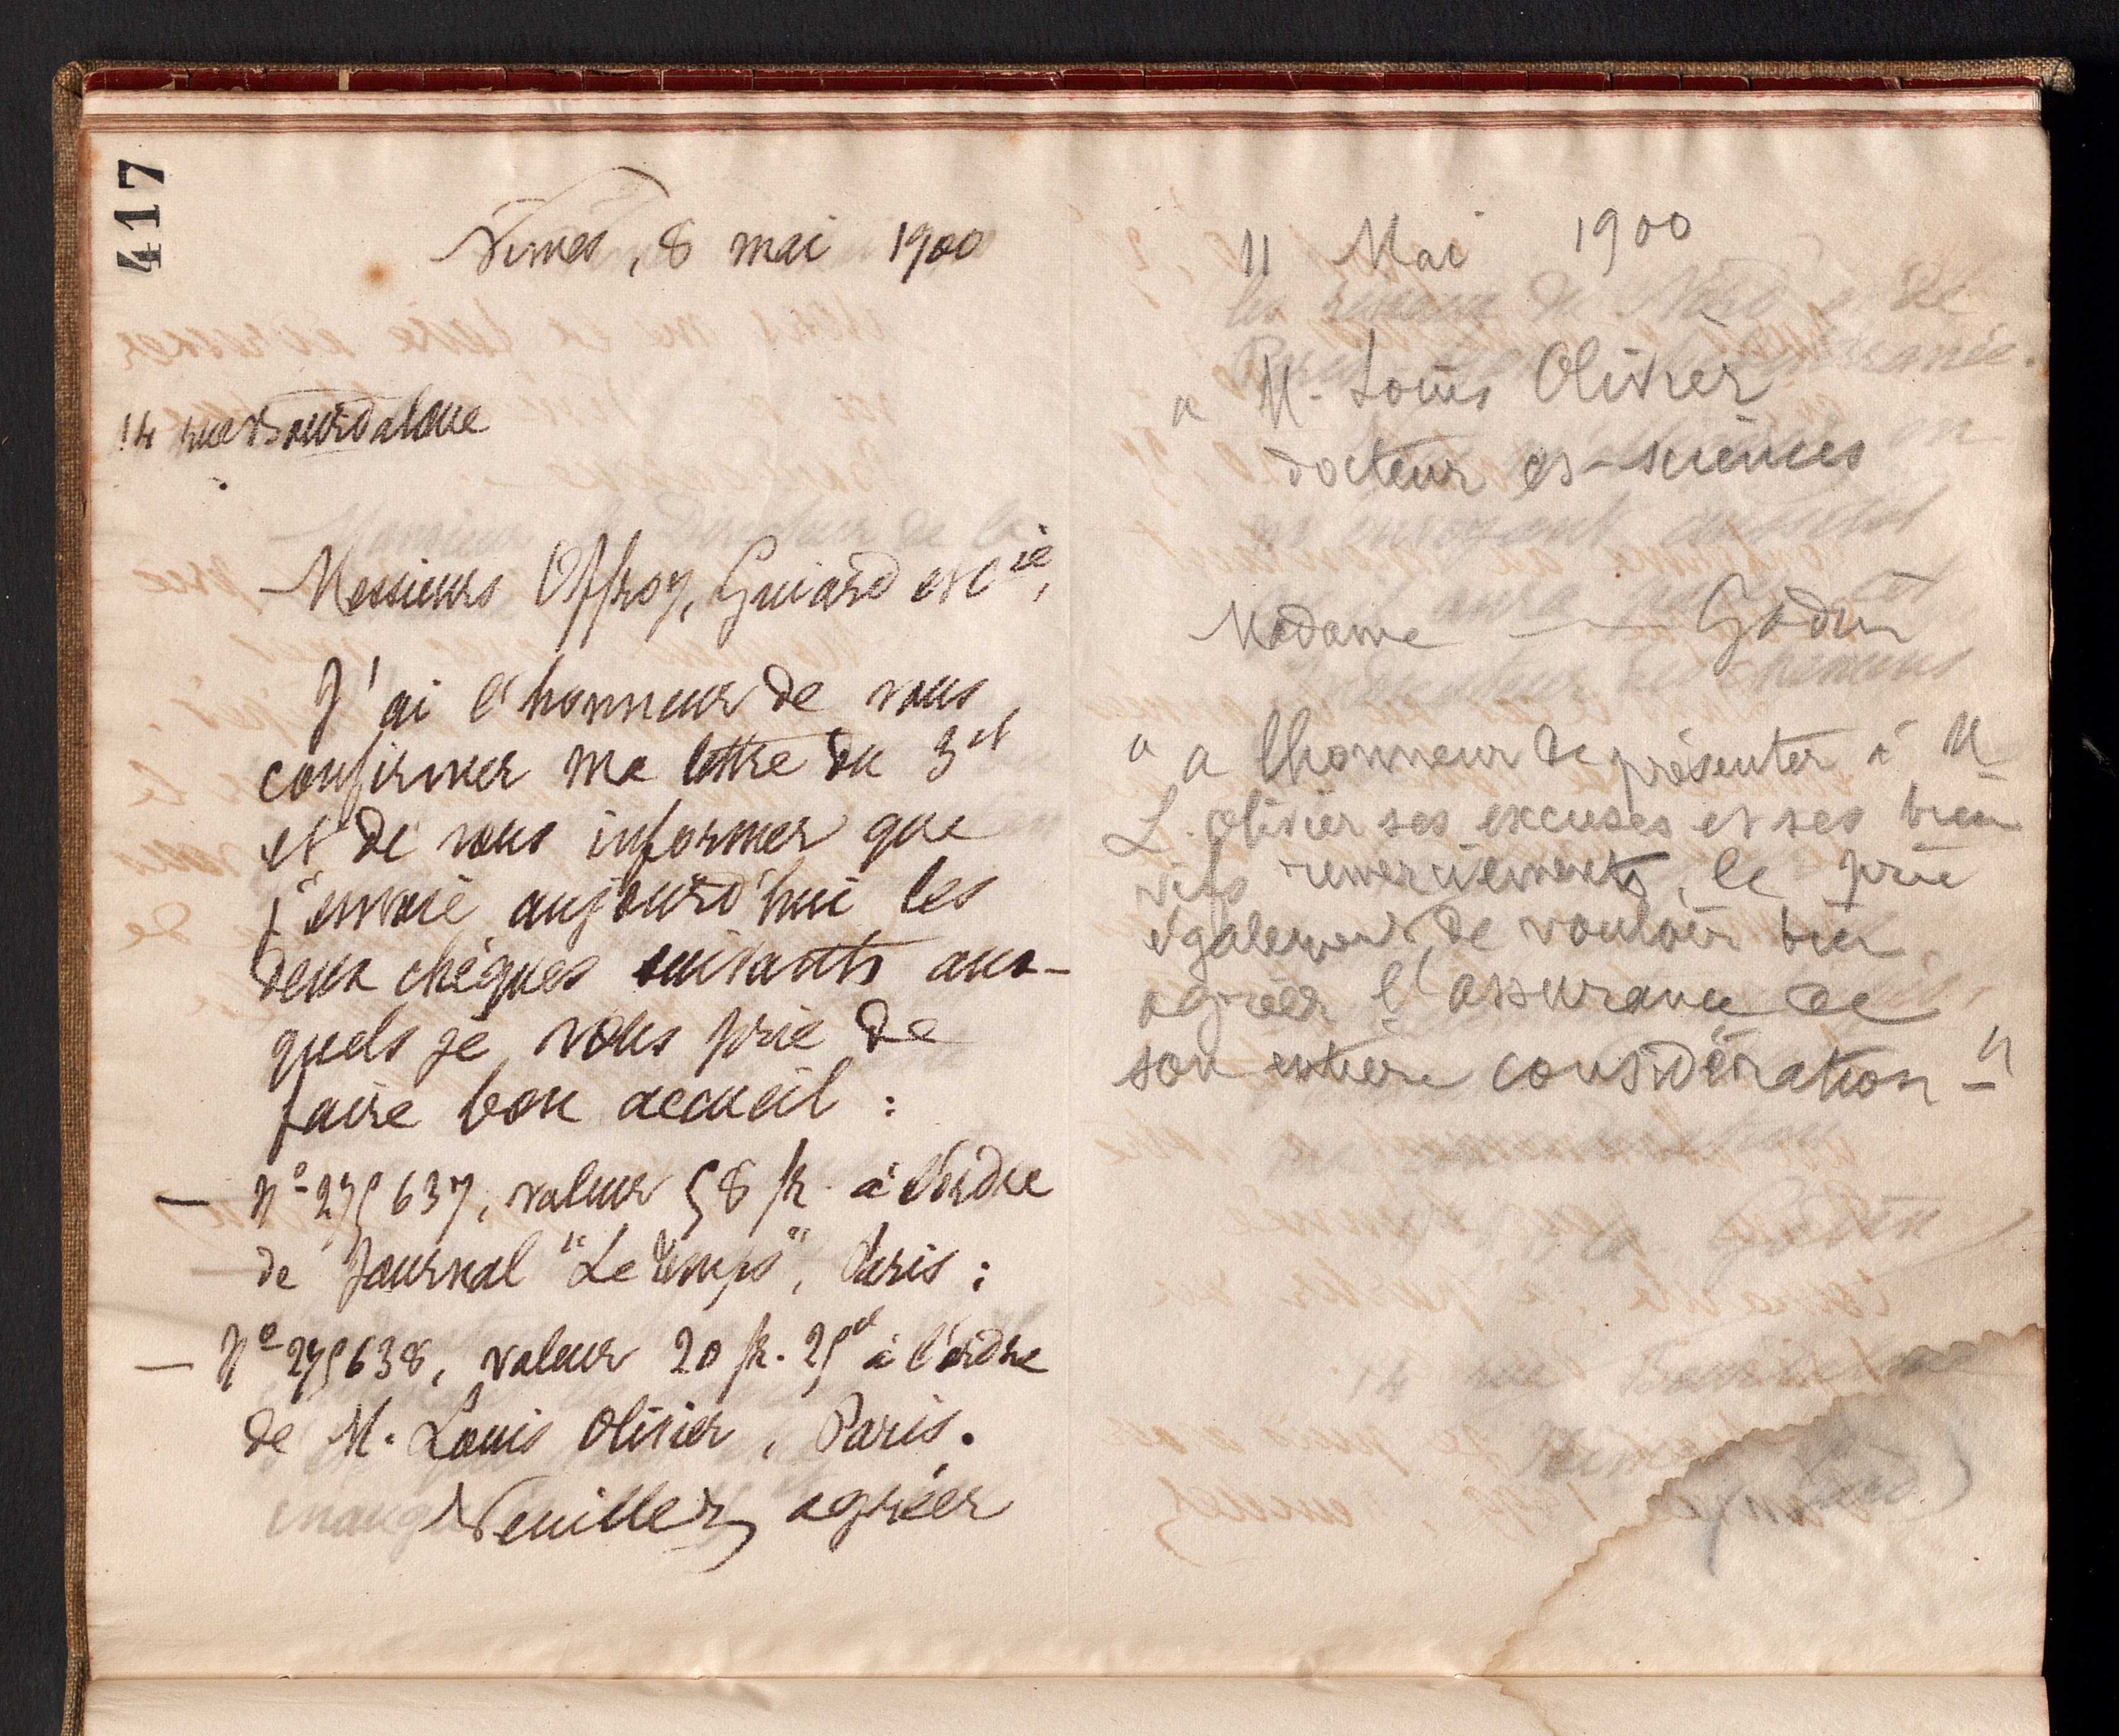 417
Nimes, 8 mai 1900
14 rue Bourdaloue
Messieurs Offroy, Guiard et Cie,
J'ai l'honneur de vous
confirmer ma lettre du 3 ct
et de vous informer que
j'envoie aujourd'hui les
deux chèques suivants aux-
quels je vous prie de
faire bon accueil :
— No 275637, valeur 58 fr. à l'ordre
de Journal "Le Temps", Paris ;
— No 275638, valeur 20 fr. 25 ct à l'ordre
de M. Louis Olivier, Paris.
Veuillez agréer
11 Mai 1900
a M. Louis Olivier
docteur es-sciences
Madame — Godin
" a lhonneur de présenter à M
L. Olivier ses excuses et ses bien
vifs remerciements, le prie
également de vouloir bien
agréer l'assurance de
son entière considération — "
14 rue
Nimes
(Gard)